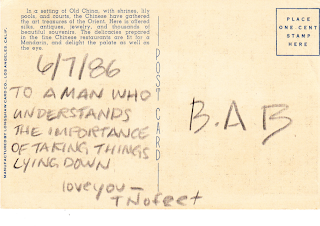 In a setting of Old China, with shrines, lily
pools, and courts, the Chinese have gathered
the art treasures of the Orient. Here is offered
silks, antiques, jewelry, and thousands of
beautiful souvenirs. The delicacies prepared
in the fine Chinese restaurants are fit for a
Mandarin, and delight the palate as well as
the eye.
6/7/86
TO A MAN WHO
UNDERSTANDS
THE IMPORTANCE
OF TAKING THINGS
LYING DOWN
love you —
TNofeet
POST CARD
PLACE
ONE CENT
STAMP
HERE
B.A B